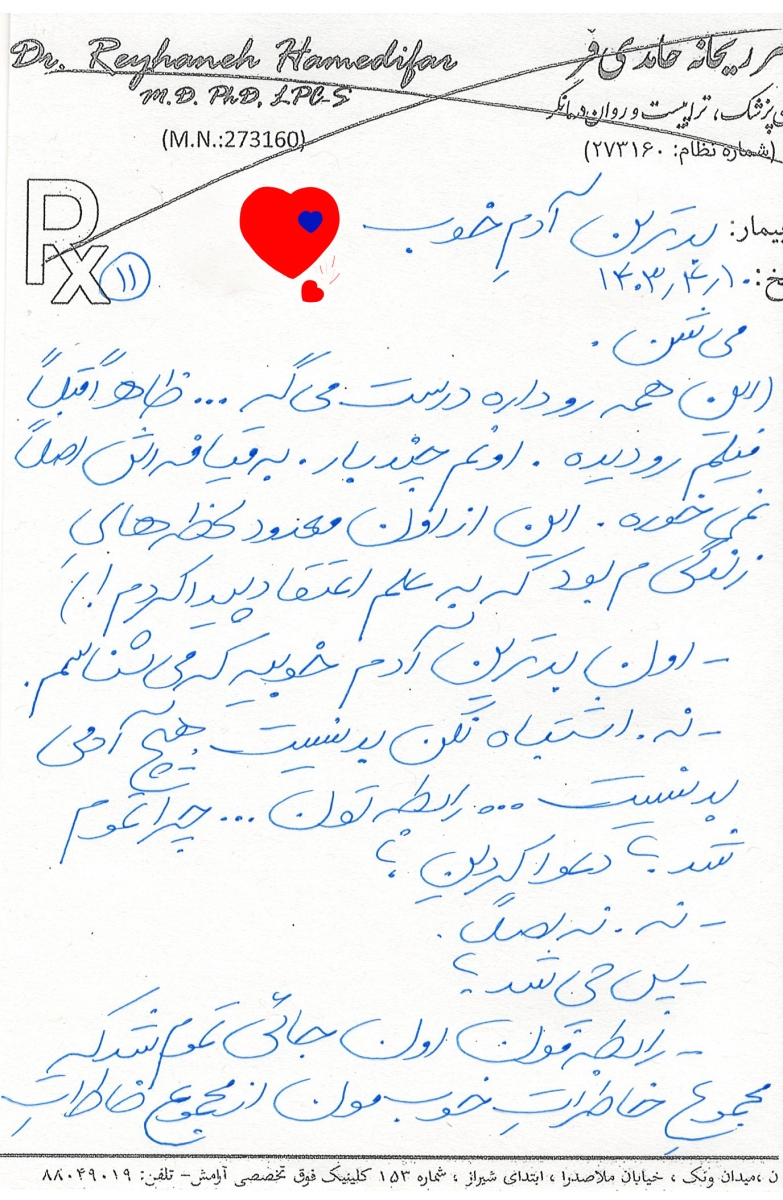 Dr. Reyhaneh Hamedifar
M.D. PhD, LPC-S
(M.N.:273160)
ر ریحانه حامدی فر
پزشک، تراپیست و روان‌درمانگر
(شماره نظام: ۲۷۳۱۶۰)
Rx ۱۱
یمار: بدترین آدمِ خوب
خ: ۱۴۰۳٫۴٫۱۰
می‌شن.
(این همه رو داره درست می‌گه ... ظاهراً قبلاً
فیلم رو دیده. اونم چند بار. به قیافه‌اش اصلاً
نمی‌خوره. این از اون معدود لحظه‌هایِ
زندگی‌م بود که به علم اعتقاد پیدا کردم!)
- اون بدترین آدم خوبیه که می‌شناسم.
- نه. اشتباه نکن بد نیست. هیچ آدمی
بد نیست ... رابطه‌تون ... چرا تموم
شد؟ دعوا کردین؟
- نه. نه اصلاً.
- پس چی شد؟
- رابطه‌مون اون جائی تموم شد که
مجموعِ خاطراتِ خوب‌مون از مجموعِ خاطراتِ
ن ،میدان ونک ، خیابان ملاصدرا ، ابتدای شیراز ، شماره ۱۵۳ کلینیک فوق تخصصی آرامش- تلفن: ۸۸۰۴۹۰۱۹